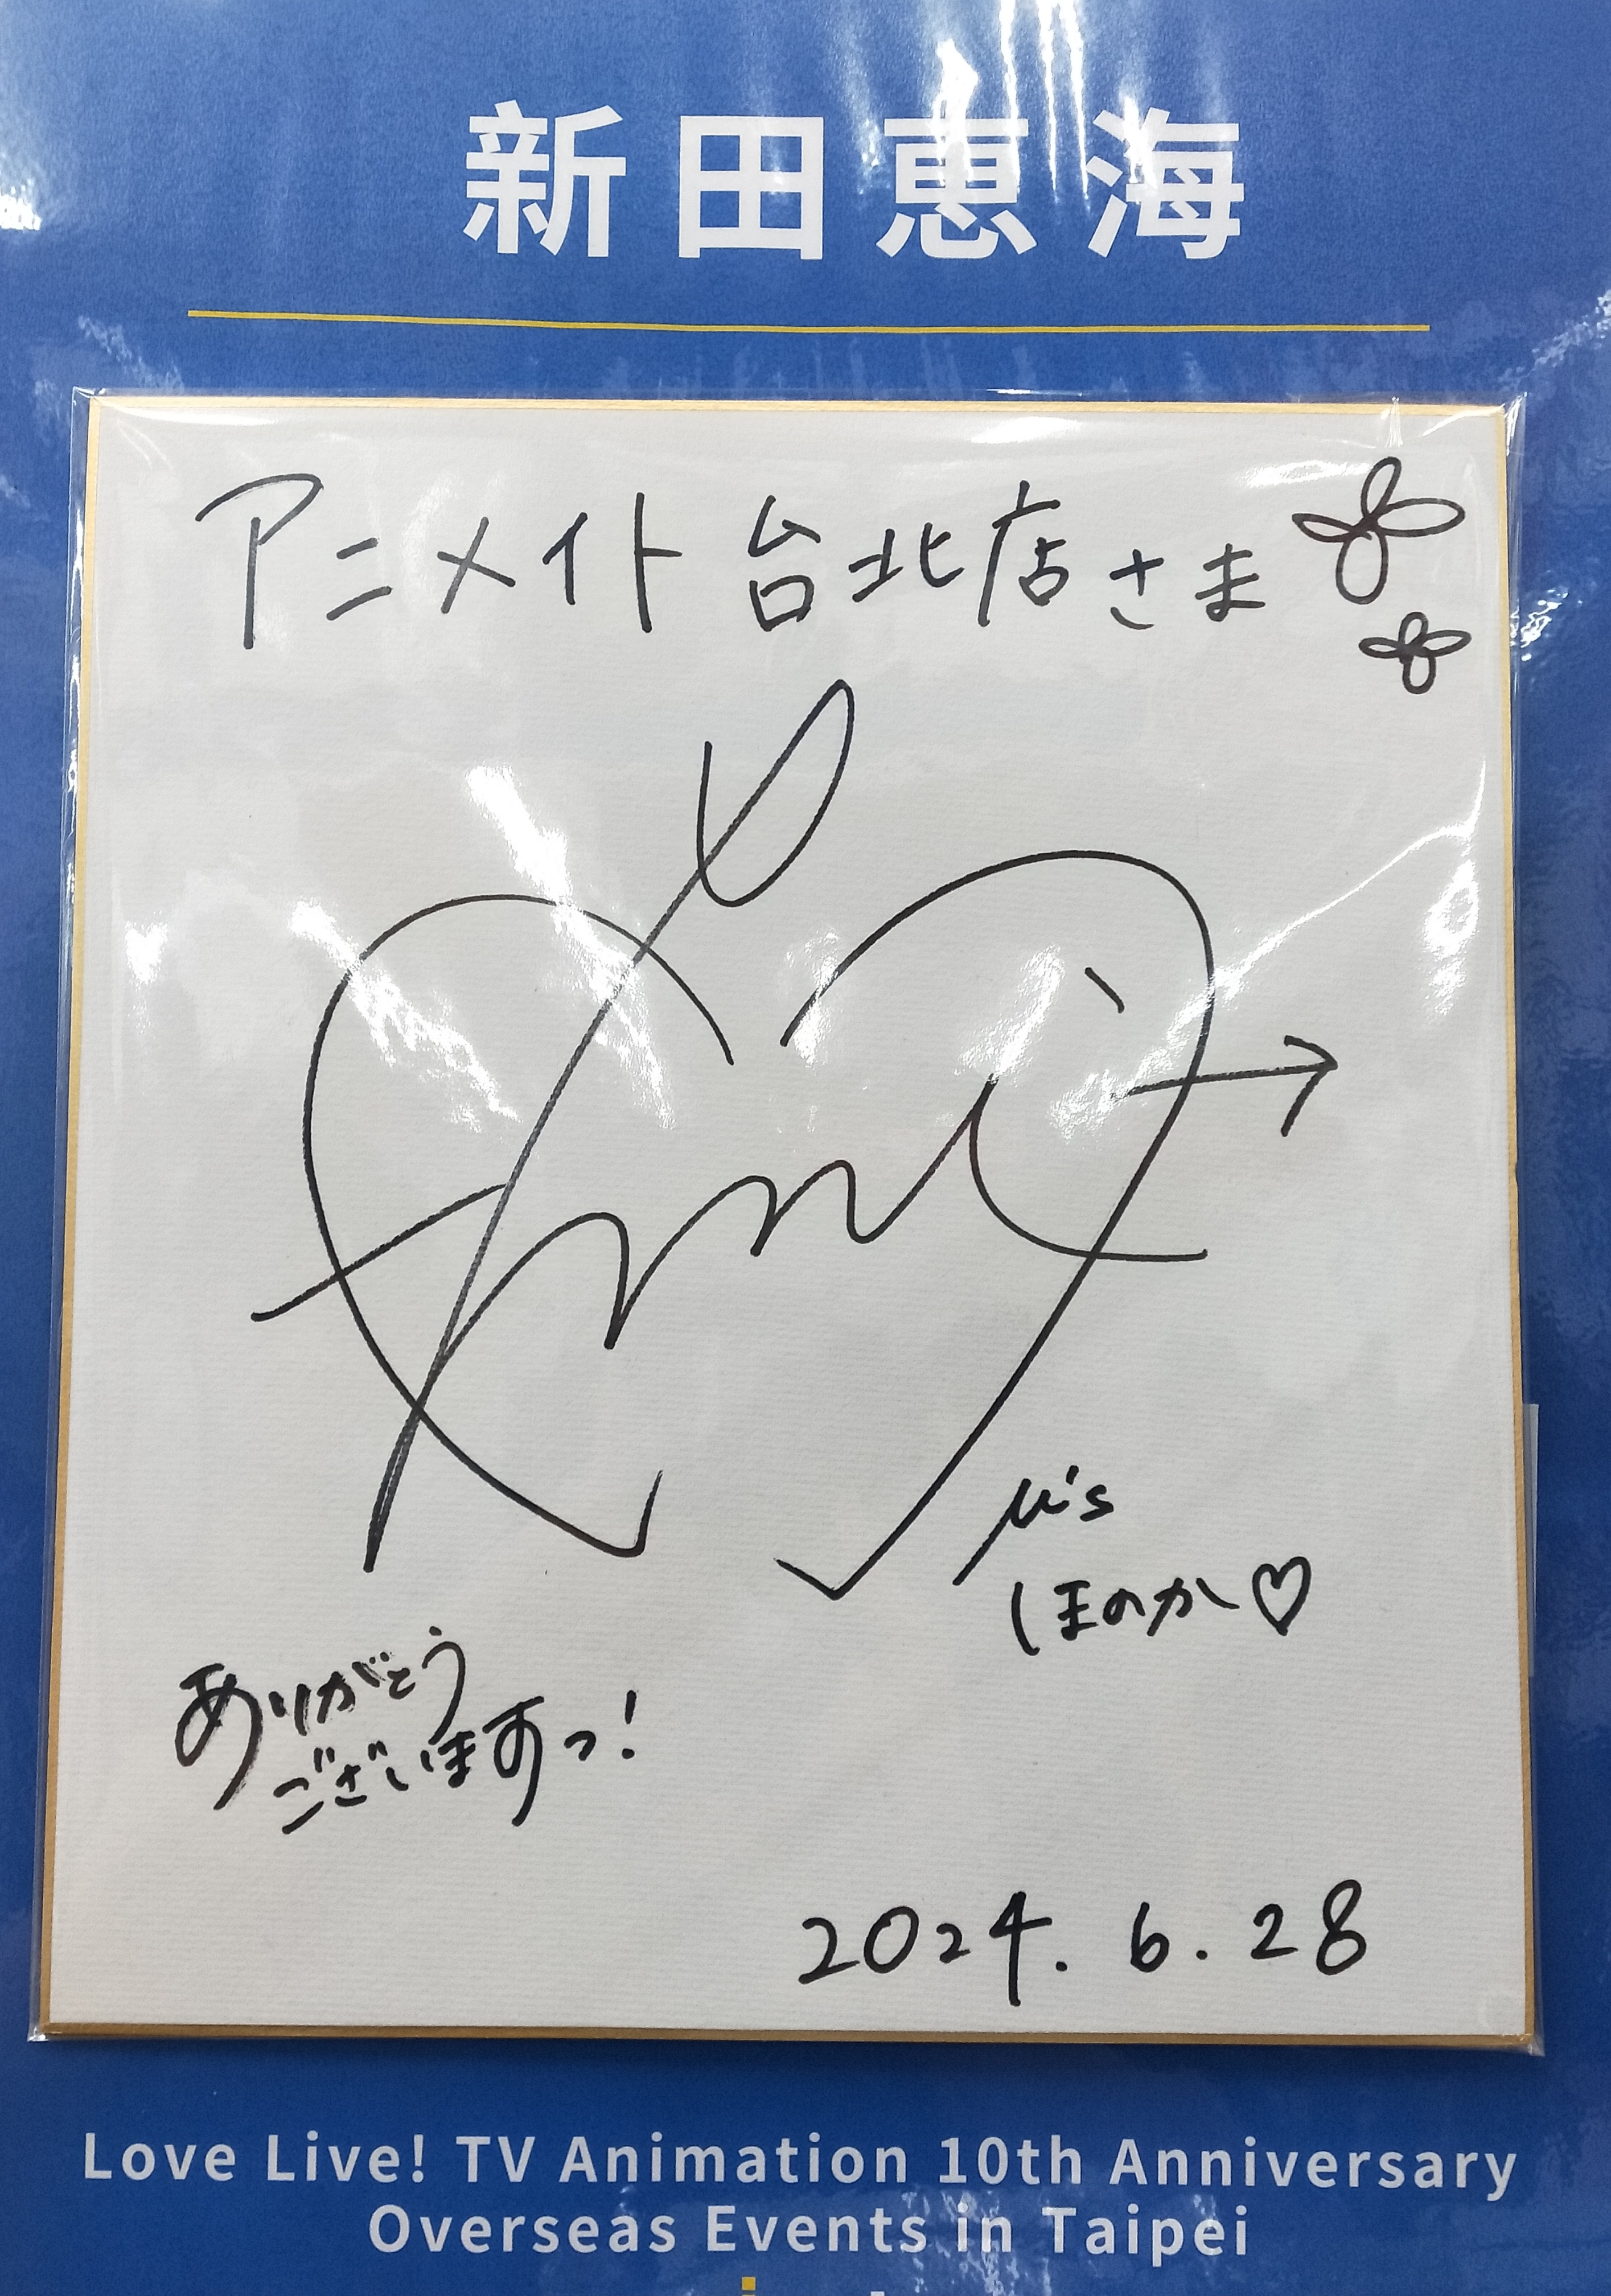 新田恵海
アニメイト 台北店さま
Emi
μ's
ほのか♡
ありがとう
ございますっ!
2024. 6. 28
Love Live! TV Animation 10th Anniversary
Overseas Events in Taipei